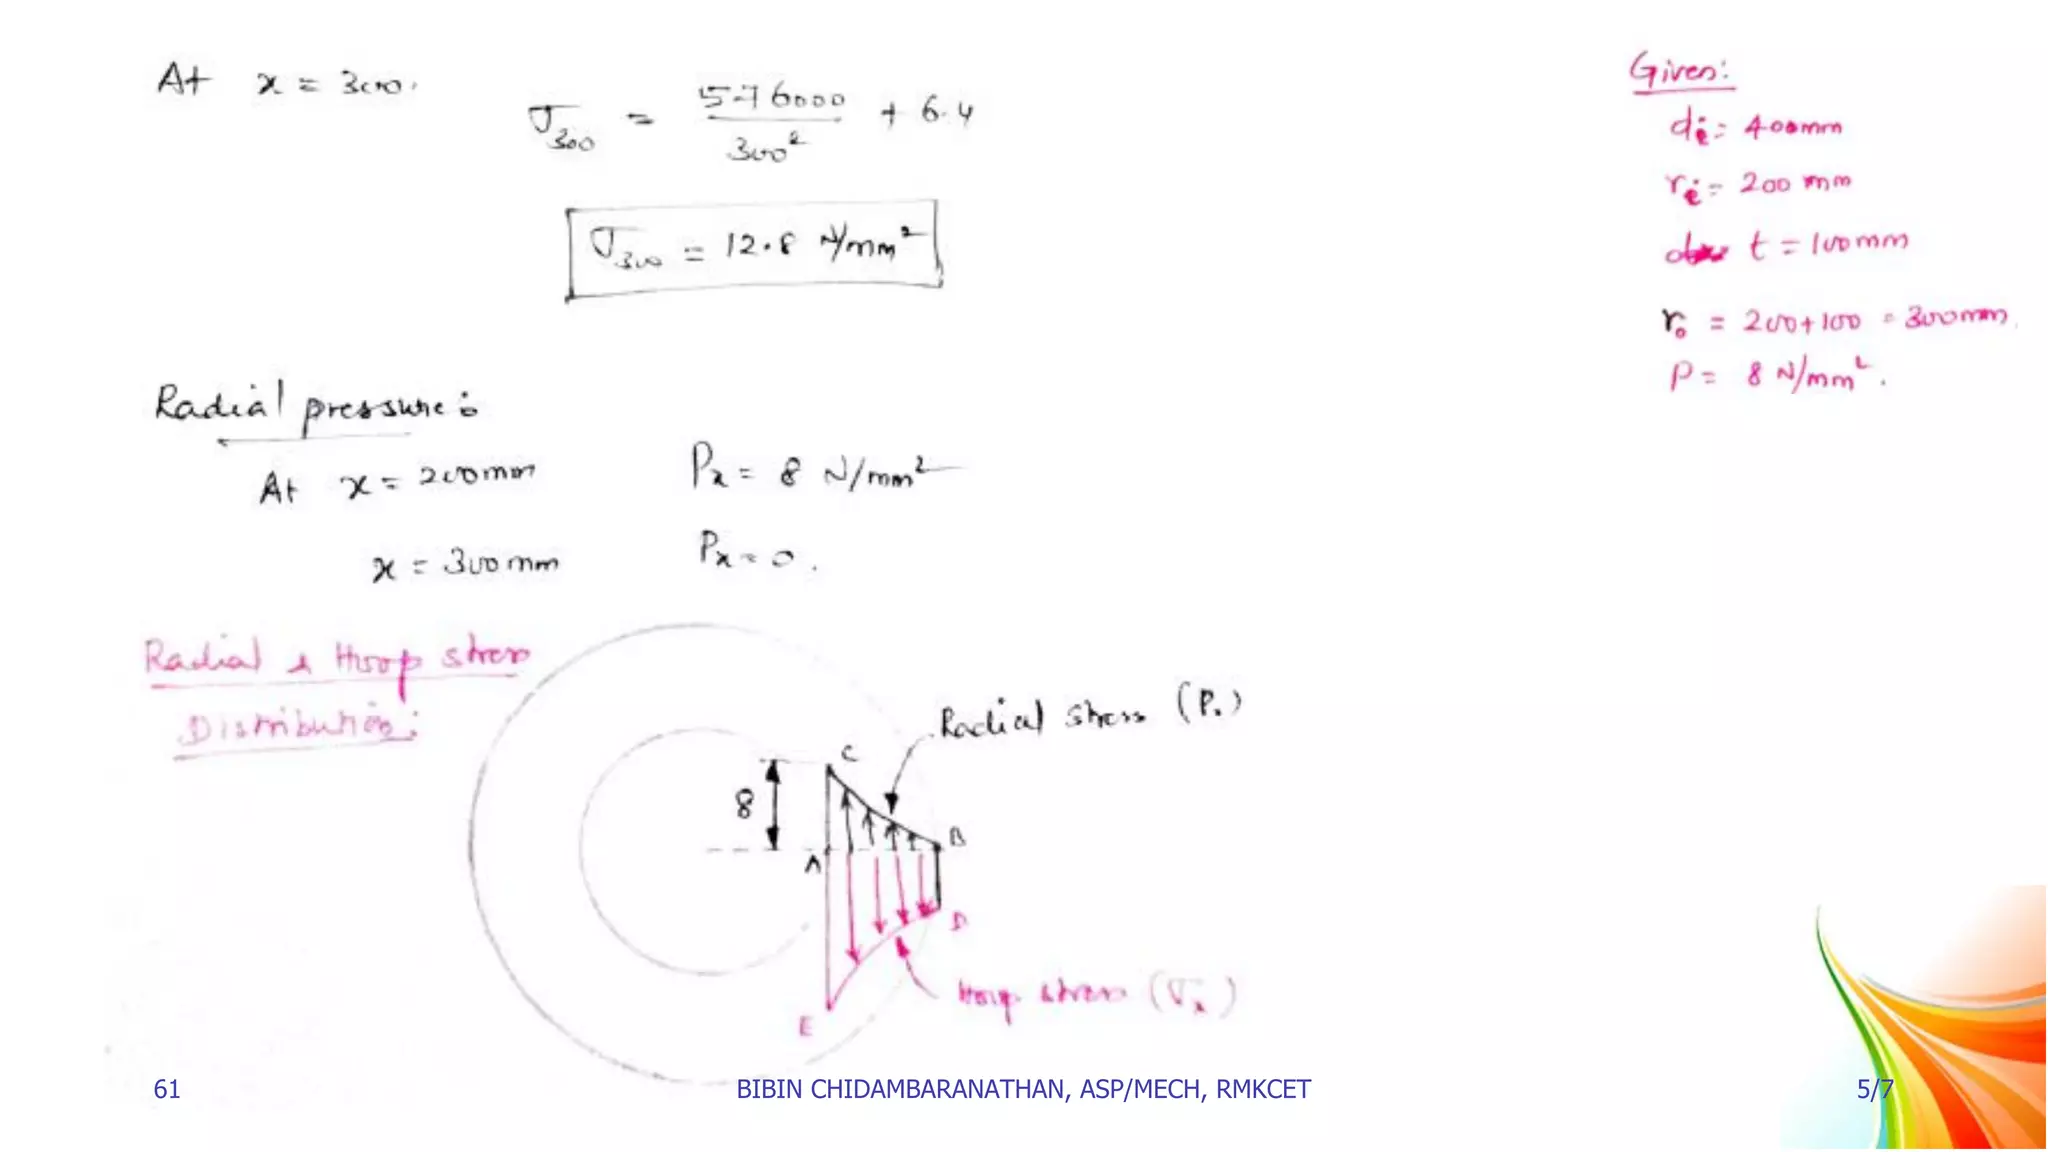 At x = 300.
σ₃₀₀ = 576000 / 300² + 6.4
σ₃₀₀ = 12.8 N/mm²
Given:
di = 400mm
ri = 200 mm
t = 100mm
r₀ = 200+100 = 300mm.
P = 8 N/mm².
Radial pressure:
At x = 200mm Px = 8 N/mm²
x = 300mm Px = 0.
Radial & Hoop stress
Distribution:
Radial stress (P.)
C
8
B
A
D
Hoop stress (σx)
E
61
BIBIN CHIDAMBARANATHAN, ASP/MECH, RMKCET
5/7